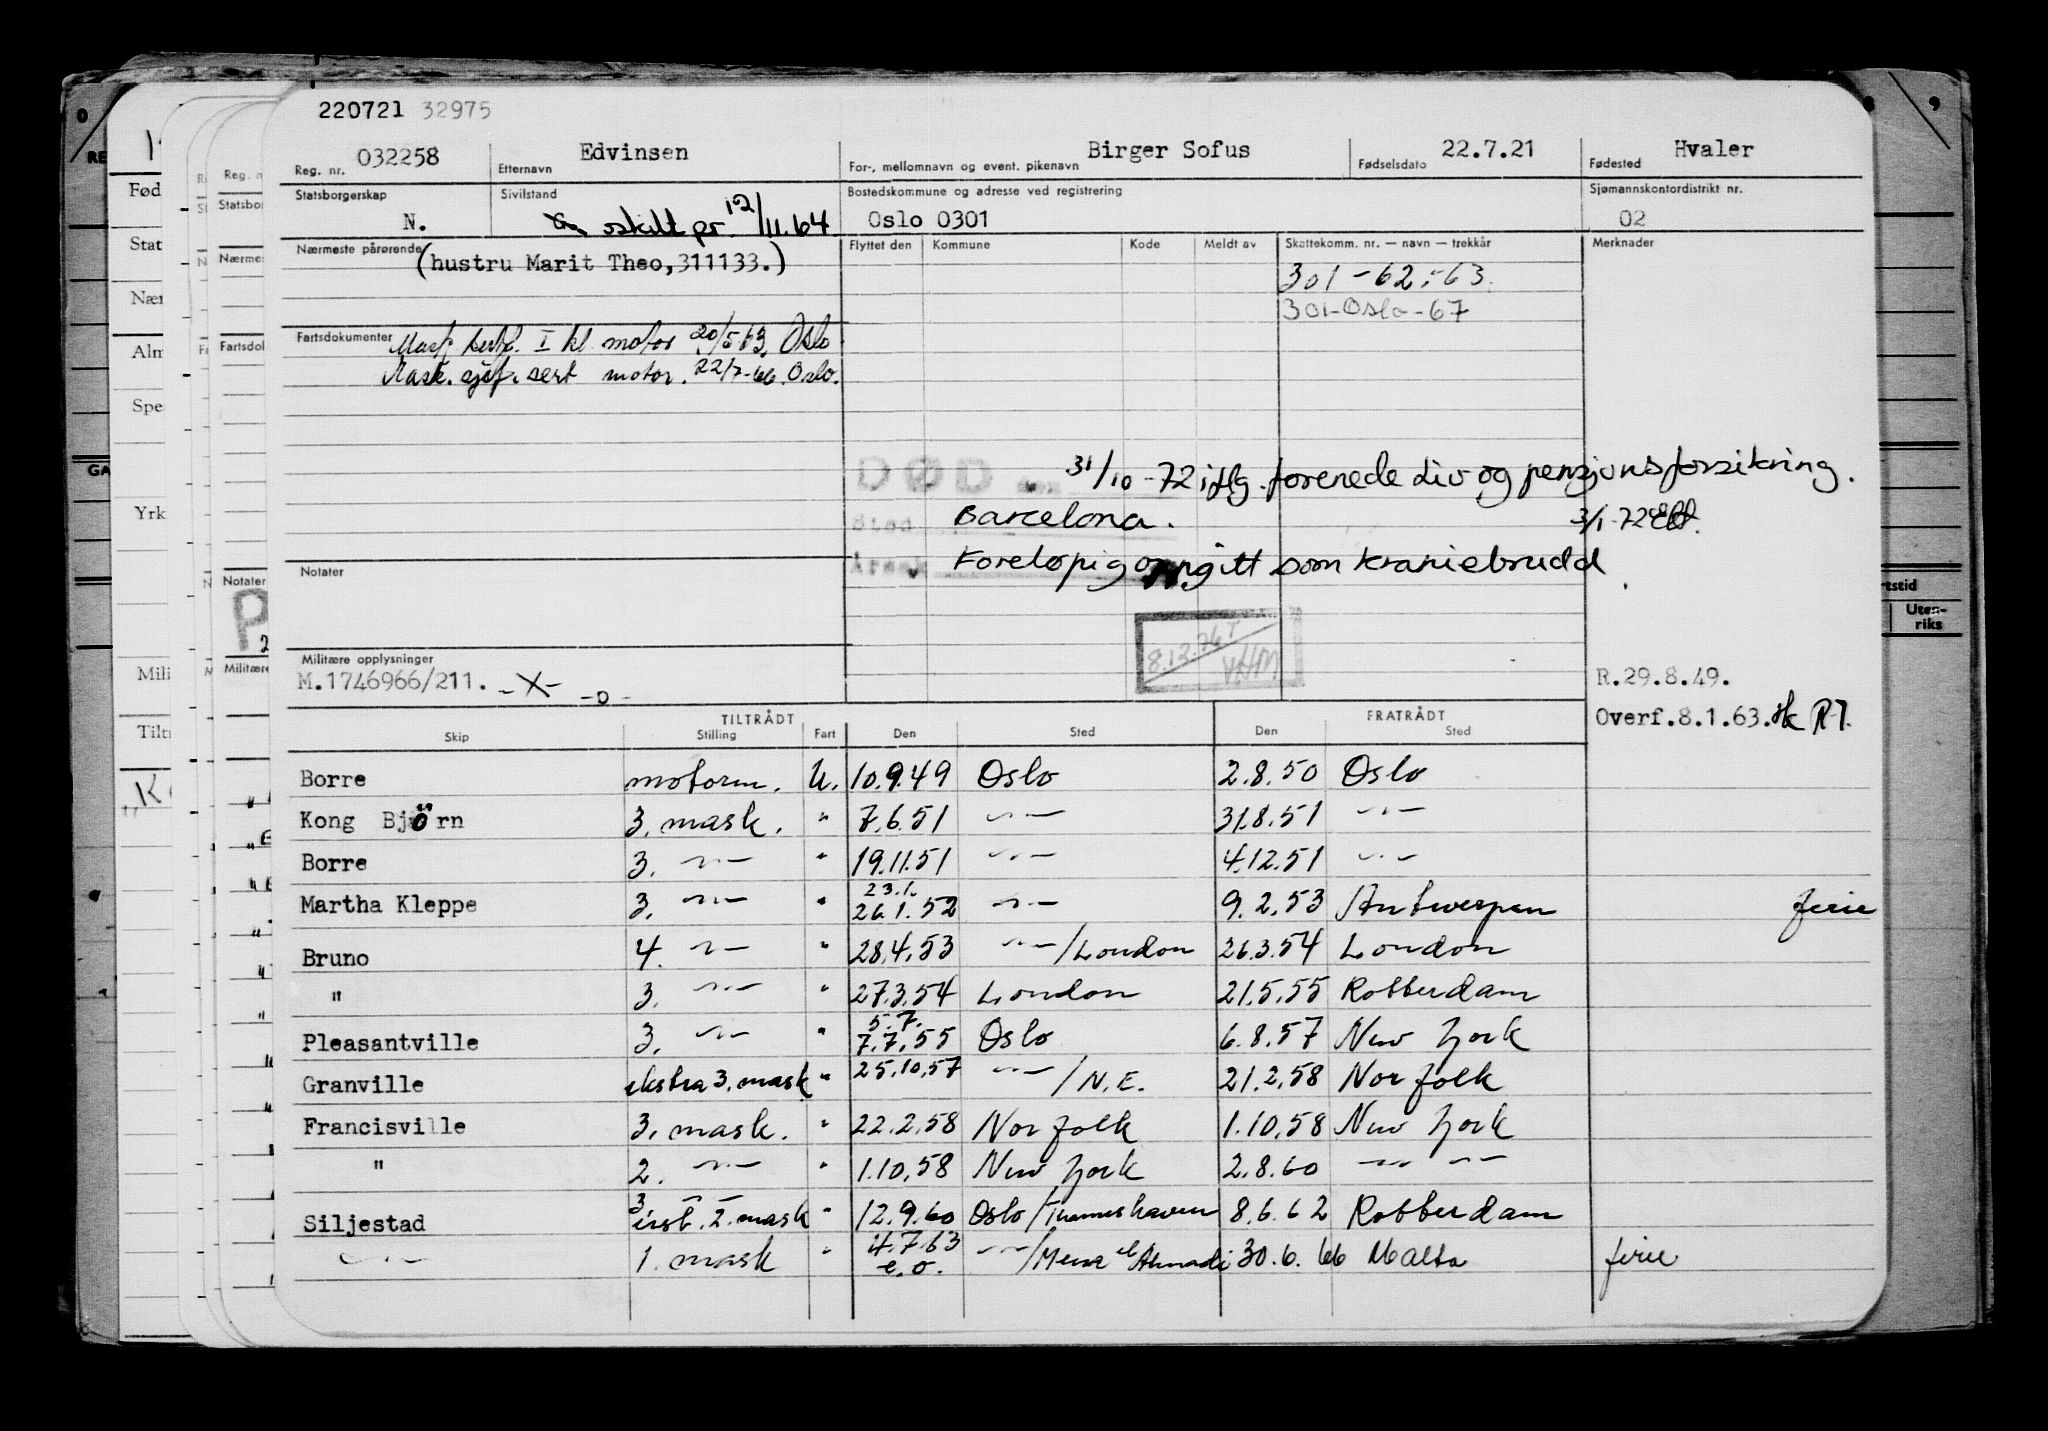 220721 32975
Reg. nr. 032258 Etternavn Edvinsen For-, mellomnavn og event. pikenavn Birger Sofus Fødselsdato 22.7.21 Fødested Hvaler
Statsborgerskap N. Sivilstand skilt pr. 12/11.64 Bostedskommune og adresse ved registrering Oslo 0301 Sjømannskontordistrikt nr. 02
Nærmeste pårørende (hustru Marit Theo,311133.) Flyttet den Kommune Kode Meldt av Skattekomm. nr. — navn — trekkår Merknader
301-62,-63.
301-Oslo-67
Fartsdokumenter Mask. sert. I kl motor 20/5-63. Oslo
Mask. sjef. sert motor. 22/7-66. Oslo.
DØD den 31/10-72 iflg. forenede Liv og pensjonsforsikring.
Sted Barcelona. 3/1-72
Årsak Foreløpig oppgitt som kraniebrudd
Notater
8.12.76
Militære opplysninger
M.1746966/211. -X- -o-
R.29.8.49.
Overf.8.1.63.
TILTRÅDT FRATRÅDT
Skip Stilling Fart Den Sted Den Sted
Borre motorm. U. 10.9.49 Oslo 2.8.50 Oslo
Kong Bjørn 3. mask. " 7.6.51 —"— 31.8.51 —"—
Borre 3. —"— " 19.11.51 —"— 4.12.51 —"—
Martha Kleppe 3. —"— " 23.1. 26.1.52 —"— 9.2.53 Antwerpen ferie
Bruno 4. —"— " 28.4.53 —"—/London 26.3.54 London
" 3. —"— " 27.3.54 London 21.5.55 Rotterdam
Pleasantville 3. —"— " 5.7. 7.7.55 Oslo 6.8.57 New York
Granville ekstra 3. mask " 25.10.57 —"—/N.E. 21.2.58 Norfolk
Francisville 3. mask. " 22.2.58 Norfolk 1.10.58 New York
" 2. —"— " 1.10.58 New York 2.8.60 —"— —"—
Siljestad 3. —"— 2. mask " 12.9.60 Oslo/Thameshaven 8.6.62 Rotterdam
—"— 1. mask " 4.7.63 e.o. —"—/Mena el Ahmadi 30.6.66 Malta ferie